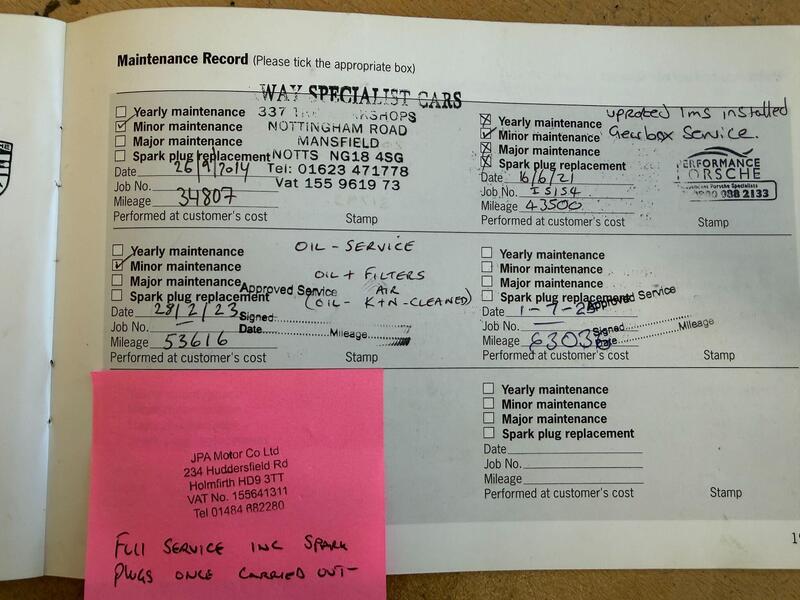 Maintenance Record (Please tick the appropriate box)
WAY SPECIALIST CARS
337
NOTTINGHAM ROAD
MANSFIELD
NOTTS NG18 4SG
Tel: 01623 471778
Vat 155 9619 73
Yearly maintenance
Minor maintenance
Major maintenance
Spark plug replacement
Date 26/9/2014
Job No.
Mileage 34807
Performed at customer's cost Stamp
uprated ims installed
Gearbox Service.
Yearly maintenance
Minor maintenance
Major maintenance
Spark plug replacement
Date 16/6/21
Job No. 15154
Mileage 43500
Performed at customer's cost Stamp
PERFORMANCE
PORSCHE
Porsche Specialists
988 2133
Yearly maintenance
Minor maintenance
Major maintenance
Spark plug replacement
Date 28/2/23
Job No.
Mileage 53616
Performed at customer's cost
OIL - SERVICE
OIL + FILTERS
AIR
(OIL - K+N - CLEANED)
Approved Service
Signed:
Date Mileage
Yearly maintenance
Minor maintenance
Major maintenance
Spark plug replacement
Date 1-7-25
Job No.
Mileage
Performed at customer's cost Stamp
Approved Service
Signed:
Date Mileage
Yearly maintenance
Minor maintenance
Major maintenance
Spark plug replacement
Date
Job No.
Mileage
Performed at customer's cost Stamp
JPA Motor Co Ltd
234 Huddersfield Rd
Holmfirth HD9 3TT
VAT No. 155641311
Tel 01484 682280
FULL SERVICE INC SPARK
PLUGS ONCE CARRIED OUT-